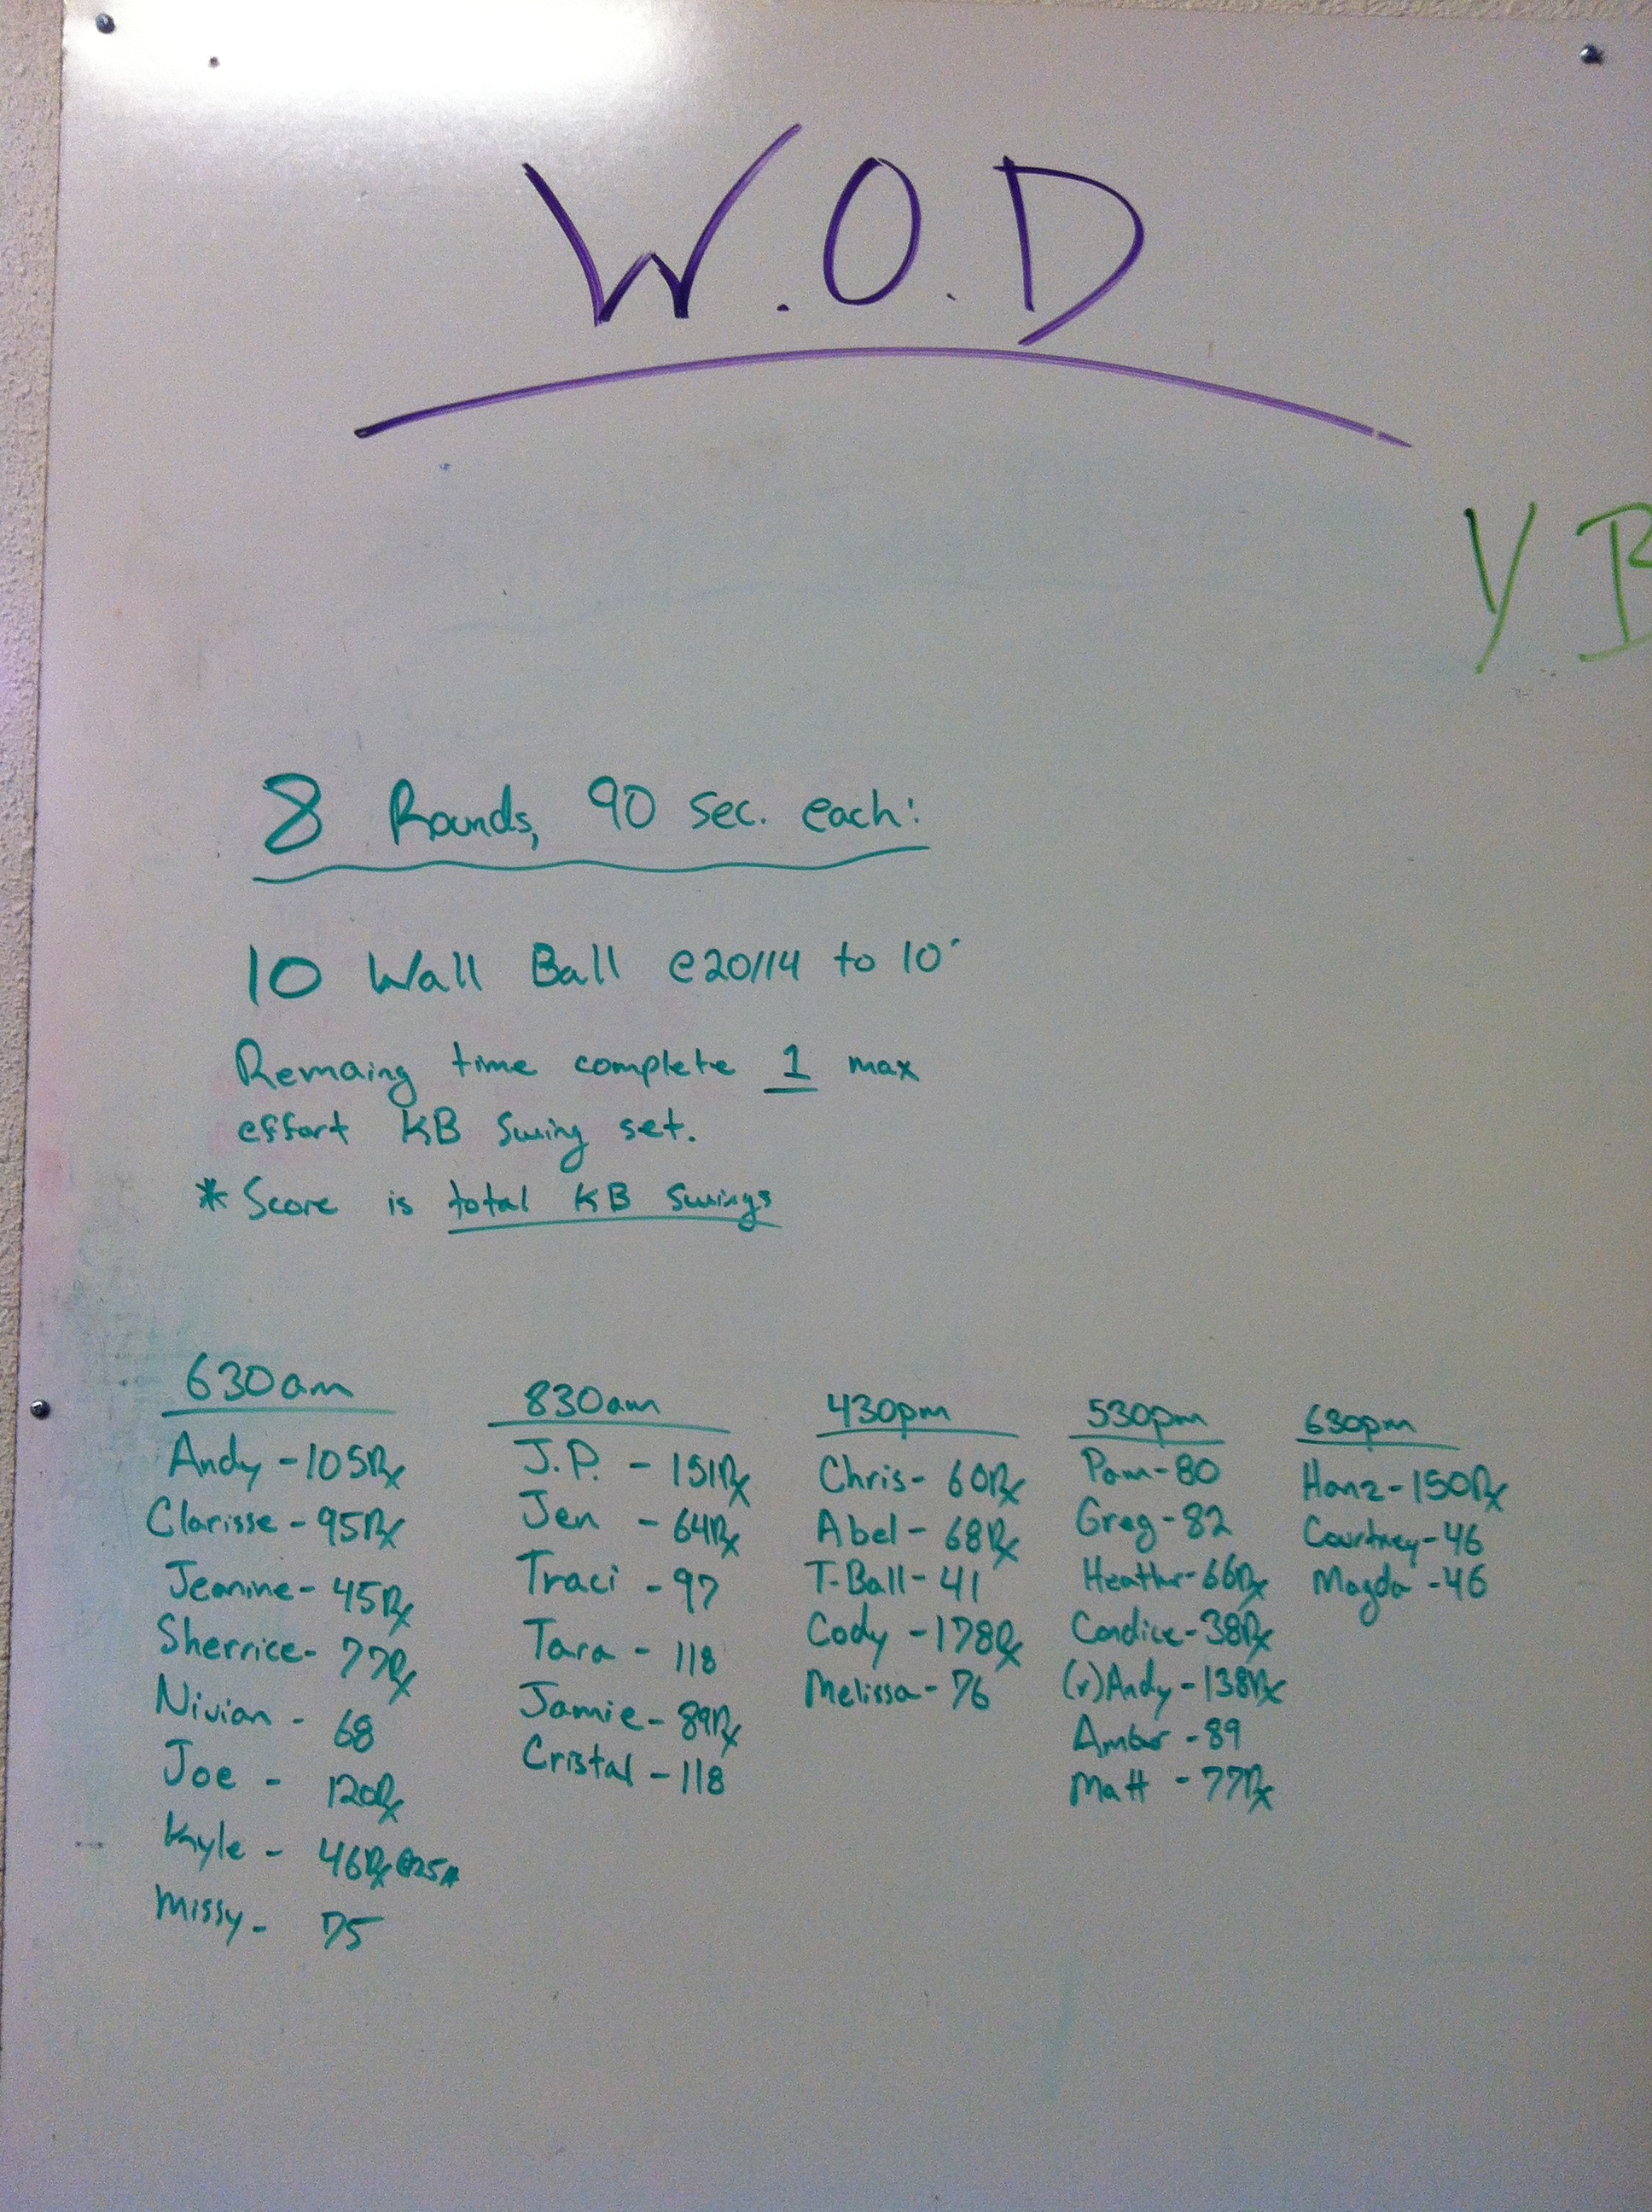 W.O.D
Y B
8 Rounds, 90 sec. each:
10 Wall Ball @20/14 to 10'
Remaing time complete 1 max
effort KB Swing set.
* Score is total KB Swings
630am
Andy - 105Rx
Clarisse - 95Rx
Jeanine - 45Rx
Sherrice - 77Rx
Nivian - 68
Joe - 120Rx
Kyle - 46Rx @25#
Missy - 75
830am
J.P. - 151Rx
Jen - 64Rx
Traci - 97
Tara - 118
Jamie - 89Rx
Cristal - 118
430pm
Chris - 60Rx
Abel - 68Rx
T-Ball - 41
Cody - 178Rx
Melissa - 76
530pm
Pam - 80
Greg - 82
Heather - 66Rx
Candice - 38Rx
(r)Andy - 138Rx
Amber - 89
Matt - 77Rx
630pm
Hanz - 150Rx
Courtney - 46
Magda - 46